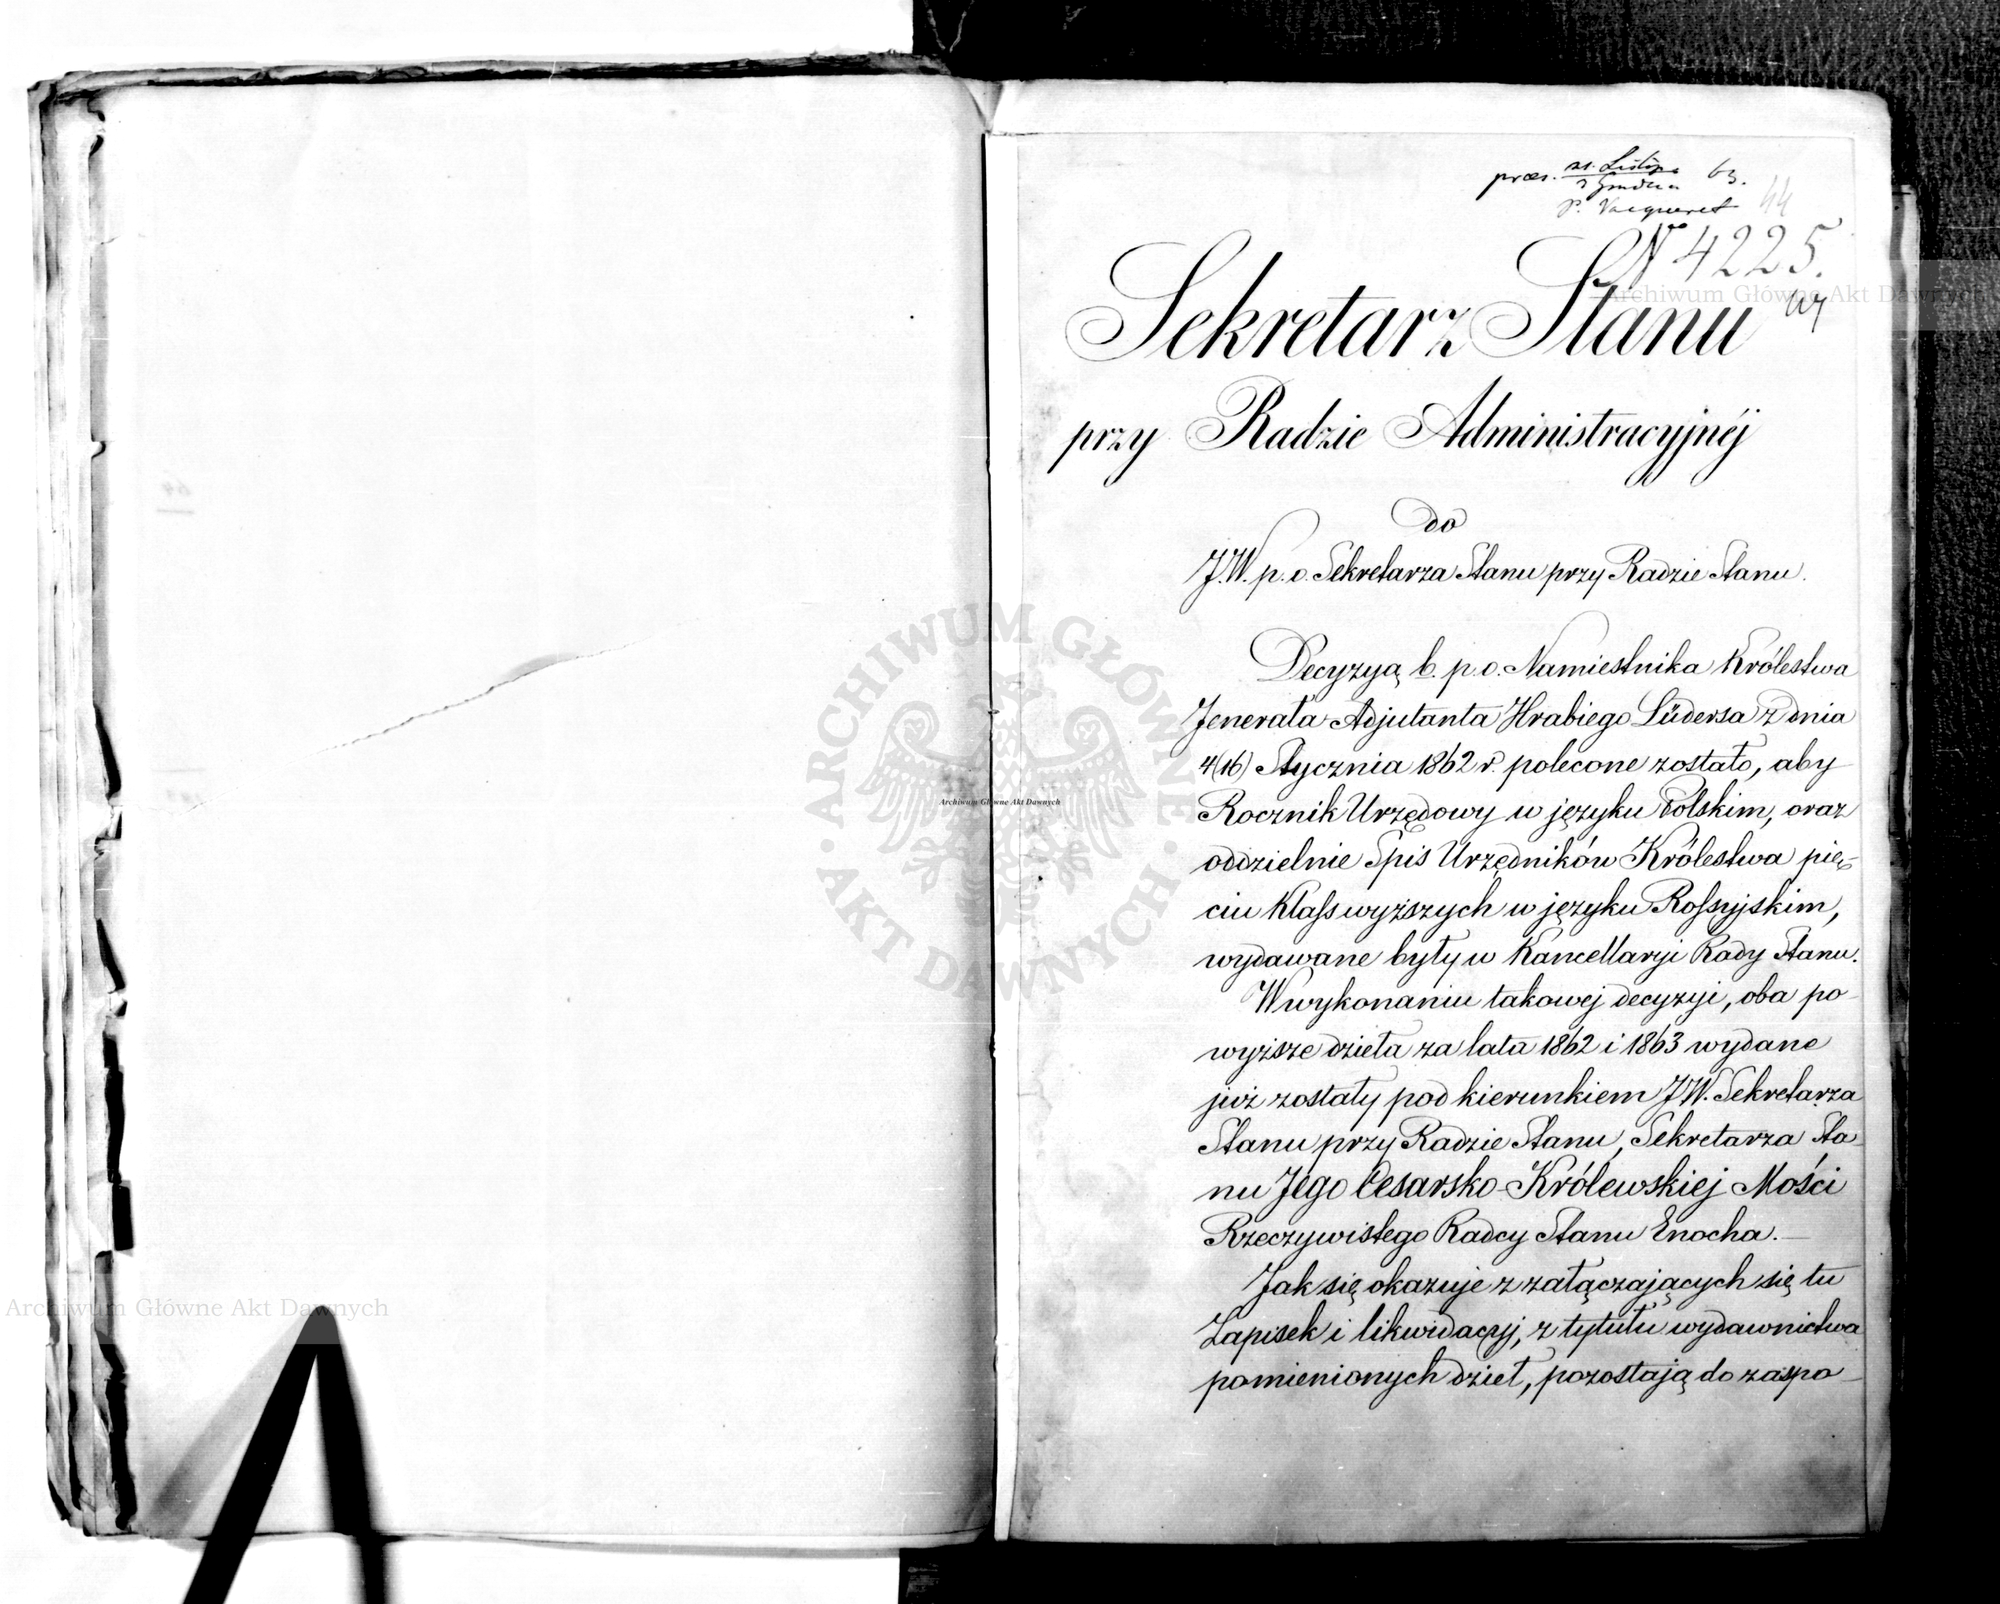 praes. 21. Listop. 63.
3 Grudnia
P. Vacqueret
44
N 4225.
Sekretarz Stanu
przy Radzie Administracyjnéj
do
J.W. p.o. Sekretarza Stanu przy Radzie Stanu.
Decyzyą b. p.o. Namiestnika Królestwa
Jenerała Adjutanta Hrabiego Lüdersa z dnia
4(16) Stycznia 1862 r. polecone zostało, aby
Rocznik Urzędowy w języku Polskim, oraz
oddzielnie Spis Urzędników Królestwa pię-
ciu Klass wyższych w języku Rossyjskim,
wydawane były w Kancellaryi Rady Stanu.
W wykonaniu takowej decyzyi, oba po-
wyższe dzieła za lata 1862 i 1863 wydane
już zostały pod kierunkiem JW. Sekretarza
Stanu przy Radzie Stanu, Sekretarza Sta-
nu Jego Cesarsko-Królewskiej Mości
Rzeczywistego Radcy Stanu Enocha.—
Jak się okazuje z załączających się tu
Zapisek i likwidacyj, z tytułu wydawnictwa
pomienionych dzieł, pozostają do zaspo-
Archiwum Główne Akt Dawnych
ARCHIWUM GŁÓWNE · AKT DAWNYCH ·
Archiwum Główne Akt Dawnych
Archiwum Główne Akt Dawnych